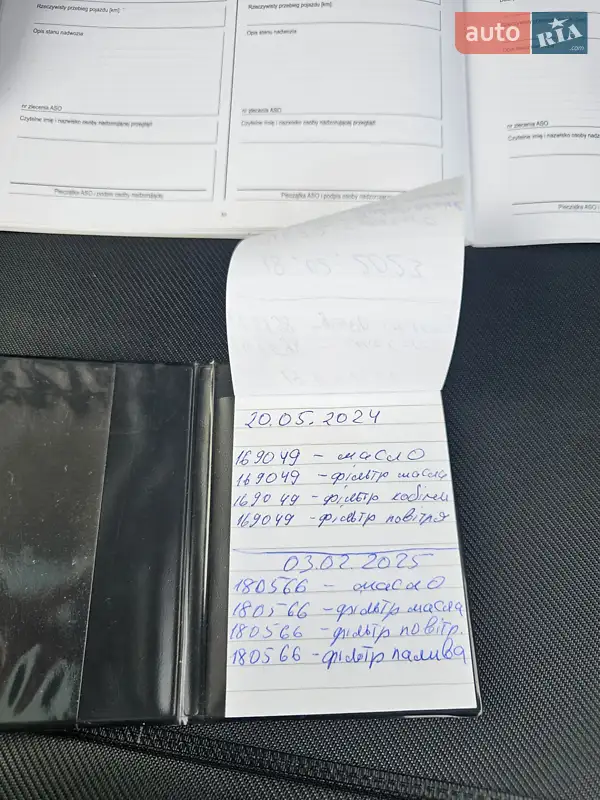 Rzeczywisty przebieg pojazdu [km]
Opis stanu nadwozia
nr zlecenia ASO
Czytelne imię i nazwisko osoby nadzorującej przegląd
Pieczątka ASO i podpis osoby nadzorującej
Rzeczywisty przebieg pojazdu [km]
Opis stanu nadwozia
nr zlecenia ASO
Czytelne imię i nazwisko osoby nadzorującej przegląd
Pieczątka ASO i podpis osoby nadzorując
nr zlecenia ASO
Czytelne imię i nazw
Pieczątka ASO i
auto RIA
.com
20.05.2024
169049 - масло
169049 - фільтр масла
169049 - фільтр кабіни
169049 - фільтр повітря
03.02.2025
180566 - масло
180566 - фільтр масла
180566 - фільтр повітр.
180566 - фільтр палива